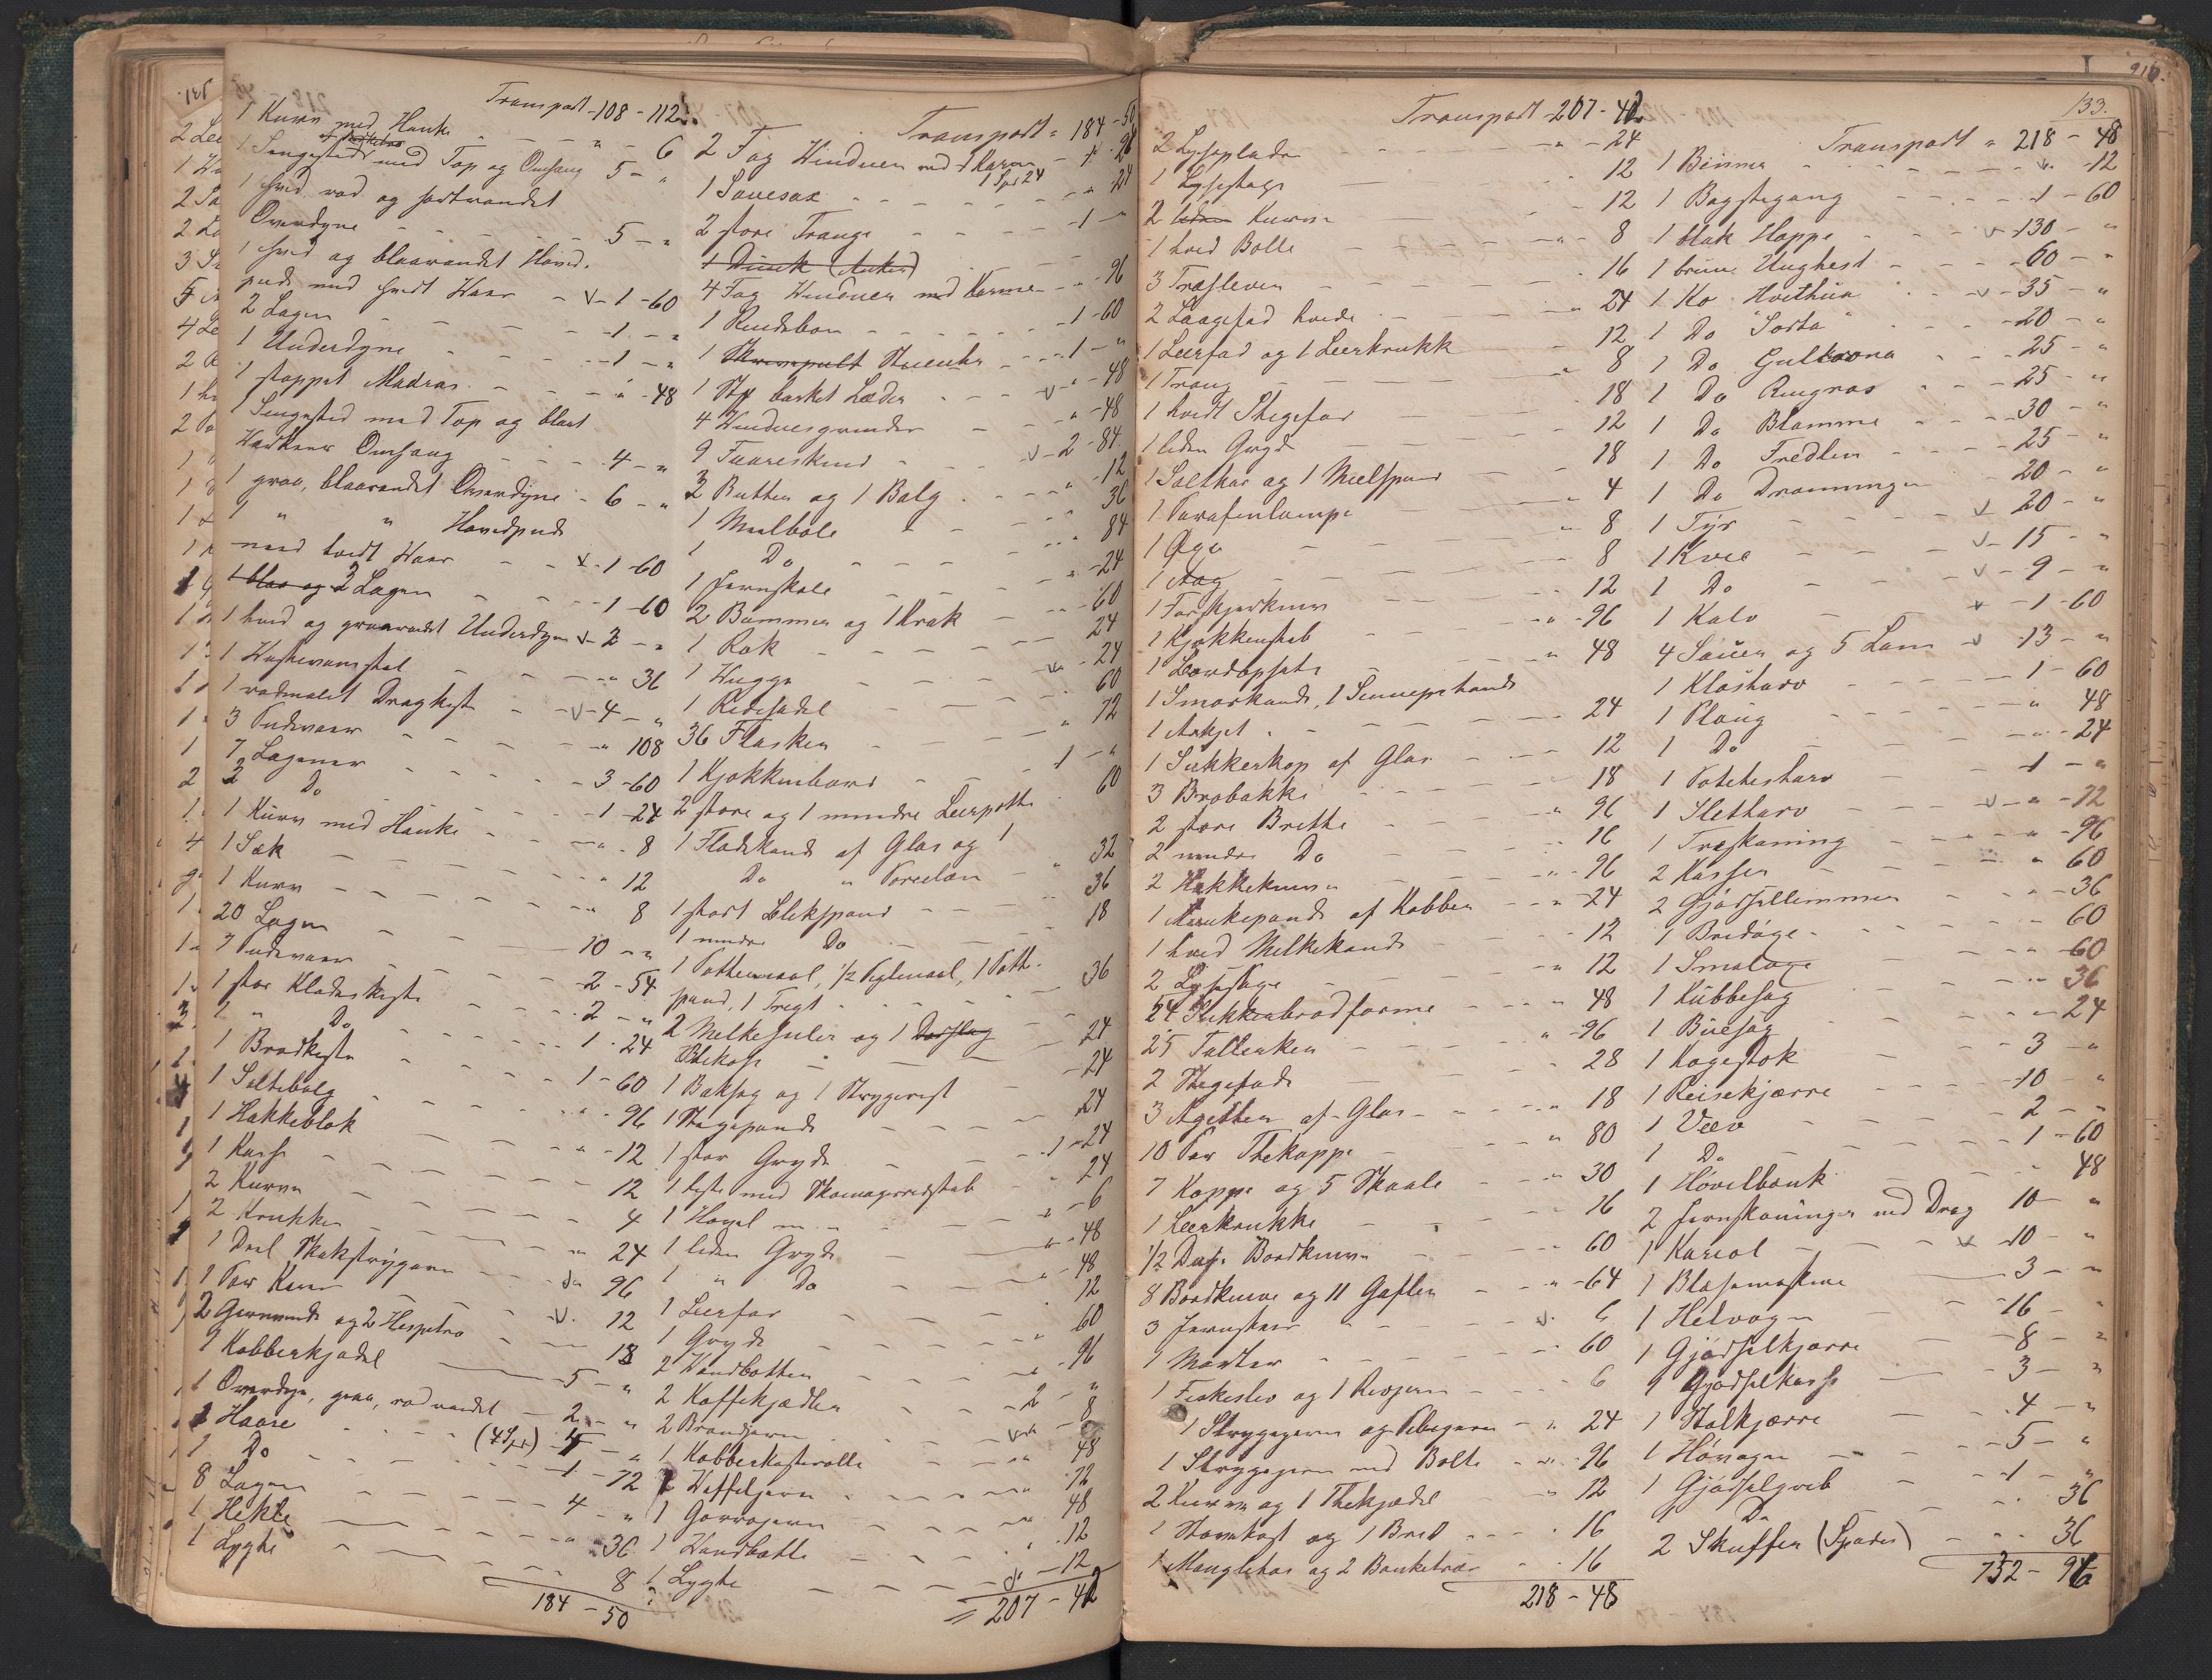 Transport - 108 - 112
1 Kurv med Hanke - - - " 6
1 Sengested med Top og Omhæng 5 - "
1 hvid rød og sortrandet
Overdyne - - - 5 - "
1 hvid og blaarandet Hoved-
pude med hvidt Waar - v - 1 - 60
2 Lagen - - - 1 - "
1 Underdyne - - - 1 - "
1 stoppet Madras - - - " - 48
1 Sengested med Top og blaat
Værkens Omhæng - - - 4 - "
1 graa, blaarandet Overdyne - 6 - "
1 " " Hovedpude
med hvidt Waar - - v - 1 - 60
1 blaa og 2 Lagen - - - 1 - 60
1 hvid og graarandet Underdyne v - 2 - "
1 Waskevamstel - - - " 36
1 rødmalet Dragkiste - - v - 4 - "
3 Pudevaar - - - " 108
7 Lagener - - - 3 - 60
2 Do - - - 1 - 24
1 Kurv med Hanke - - - " - 8
1 Sæk - - - " 12
1 Kurv - - - " 8
20 Lagen - - - 10 - "
7 Pudevaar - - - 2 - 54
1 stor Klædeskiste - - - 2 - "
1 " Do - - - 1 - 24
1 Brødkiste - - - 1 - 60
1 Saltebalg - - - " 96
1 Hakkeblok - - - " - 12
1 Kasse - - - 12
2 Kurve - - - 4
2 Krukker - - - " 24
1 Deel Skakstrygarn - - - v " 96
1 Par Karer - - - v 12
2 Garnvinde og 2 Hespetræ - - 18
1 Kobberkjedel - - - 5 - "
1 Overdyne, graa, rød randet - 2 - "
1 Haare - - - (4 Spd) 4 - "
1 Do - - - 1 - 72
8 Lagen - - - 4 - "
1 Hekle - - - " 36
1 Lygte - - - 8
184 - 50
Transport = 184 - 50
2 Fag Vinduer med 1 Karm - 1 - 96
1 Spd 24
1 Sauesax - - - " 24
2 store Trauge - - - 1 - "
1 Dunk (Anker)
4 Fag Vinduer med Karme - " 96
1 Rundebom - - - 1 - 60
1 Skrivepult Stueuhr - - - 1 - "
1 Stk barket Læder - - - v " - 48
4 Vinduesgrinder - - - " - 48
9 Faareskind - - - v - 2 - 84
2 Butter og 1 Balg - - - " - 12
1 Meelbøle - - - 36
1 Do - - - 84
1 Jernskole - - - " - 24
2 Bommer og 1 Krak - - - 60
1 Rok - - - 24
1 Vugge - - - v " - 24
1 Ridesadel - - - 60
36 Flasker - - - " 72
1 Kjøkkenbord - - - 1 - "
2 store og 1 mindre Leerpotte 60
1 Flødekande af Glas og 1
Do " Porcelæn - " 32
1 stort Blikspand - - - 36
1 mindre Do - - - 18
1 Pottemaal, 1/2 Pæglemaal, 1 Pott-
pand, 1 Tregt - - - 36
2 Melkesiler og 1 Dørslag
Ostekasse - - - 24
1 Baksag og 1 Strygerist - 24
1 Stegepande - - - 24
1 stor Gryde - - - 1 - 24
1 Kiste med Skomagerredskab - 24
1 Høvel m - - - " - 6
1 liden Gryde - - - " - 48
1 " Do - - - 48
1 Leerfad - - - 12
1 Gryde - - - 60
2 Vandbøtter - - - " - 96
2 Kaffekjedler - - - 2 - "
2 Brandjern - - - v " 8
1 Kobberkasterolle - - - 48
2 Vaffeljern - - - " 72
1 Gorrojern - - - 48
1 Vandbøtte - - - 12
1 Lygte - - - 12
= 207 - 42
Transport - 207 - 42
2 Lyseplader - - - " - 24
1 Lysestage - - - 12
2 liden Kurve - - - 12
1 hvid Bolle - - - " - 8
3 Træslever - - - 16
2 Laagefad hvide - - - " 24
1 Leerfad og 1 Leerkrukk - 12
1 Traug - - - " 8
1 hvidt Stegefad - - - 18
1 liden Gryde - - - 12
1 Saltkar og 1 Meelspand - 18
1 Parafinlampe - - - " 4
1 Øxe - - - " 8
1 Aag - - - 8
1 Forskjærkniv - - - 12
1 Kjøkkenskab - - - " - 96
1 Bordopsats - - - " 48
1 Smørkande, 1 Sennepskande
1 Ankjel - - - 24
1 Sukkerkop af Glas - - 12
3 Brøbakke - - - 18
2 store Brette - - - " 96
2 mindre Do - - - 16
2 Hakkeknive - - - " - 96
1 Kaukepande af Kobber - - " - 24
1 hvid Melkekande - - 12
2 Lysstage - - - " 12
24 Sukkerbrødforme - - - " 48
25 Tallerken - - - " - 96
2 Stegefade - - - 28
3 Agetter af Glas - - - " 18
10 Par Thekopper - - - " 80
7 Koppe og 5 Skaale - - " 30
1 Leerkrukke - - - 16
1/2 Dus. Bordknive - - - " 60
8 Bordknive og 11 Gafler - - " - 64
3 Jernskeer - - - v. 6
1 Morter - - - " 60
1 Fiskeslev og 1 Rivjern - - 6
1 Strygejern og Pibejern - " 24
1 Strygejern med Bolte - - " - 96
2 Kurve og 1 Thekjedel - " 12
1 Støvekost og 1 Bred - - - 16
1 Manglekar og 2 Banketræ - - 16
218 - 48
133.
Transport " 218 - 48
1 Bismer - - - v. - 12
1 Bagstegang - - - 1 - 60
1 blak Hoppe - - - v - 130 - "
1 brun Unghest - - - 60 - "
1 Ko Hvithua - - v - 35 - "
1 Do "Sorta" - - - 20 - "
1 Do Gulkrona - - - 25 - "
1 Do Ringros - - - 25 - "
1 Do Blomme - - - 30 - "
1 Do Fredlin - - - 25 - "
1 Do Dronningen - 20 - "
1 Tyr - - - v 20 - "
1 Kvie - - - v - 15 - "
1 Do - - - v - 9 - "
1 Kalv - - - v - 1 - 60
4 Sauer og 5 Lam v 13 - "
1 Kloharv - - - 1 - 60
1 Ploug - - - " 48
1 Do - - - " - 24
1 Potetesharv - - - 1 - "
1 Sletharv - - - v - " - 72
1 Træskaning - - - " - 96
2 Kasser - - - " 60
2 Gjødsellemmer - - - 36
1 Bredøxe - - - 60
1 Smaløxe - - - " 60
1 Kubbesag - - - " 36
1 Buesag - - - " 24
1 Kagestok - - - 3 - "
1 Reisekjærre - - - 10 - "
1 Væv - - - 2 - "
1 Do - - - 1 - 60
1 Høvelbænk - - - 48
2 Jernskaninger med Drag 10 - "
1 Kariol - - - v - 10 - "
1 Blæsemaskine - - - 3 - "
1 Helvogn - - - 16 - "
1 Gjødselkjærre - - - 8 - "
1 Gjødselkasse - - - 3 - "
1 Stolkjærre - - - 4 - "
1 Høvogn - - - 5 - "
1 Gjødselgreb - - - 1 - "
" Do - - - 36
2 Skuffer (Spader) - - - 36
732 - 96